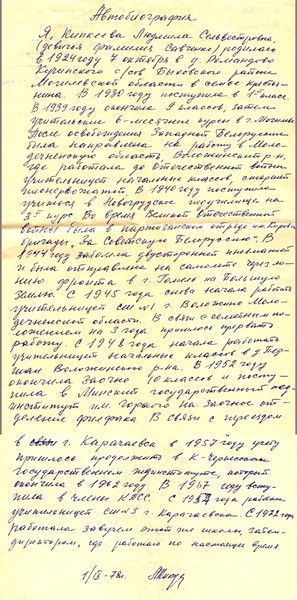 Автобиография
Я, Кипкеева Людмила Сильвестровна,
(девичья фамилия Савченко) родилась
в 1924 году 4 октября в д.
Кучинского с/сов Быховского района
Могилевской области в семье кресть-
янина. В 1930 году поступила в 1-й класс.
В 1939 году окончила 9 классов, затем
учительские 6-месячные курсы в г. Могилеве
После освобождения Западной Белоруссии
была направлена на работу в Моло-
дечненскую область, Воложинский р-н,
где работала до Отечественной войны
учительницей начальных классов, старшей
пионервожатой. В 1940 году поступила
учиться в Новогрудское педучилище на
3й курс. Во время Великой Отечественной
войны была в партизанском отряде им. Кирова
бригады „За Советскую Белоруссию". В
1944 году заболела двусторонней пневмонией
и была отправлена на самолете через ли-
нию фронта в г. Гомель на Большую
Землю. С 1945 года снова начала работать
учительницей сш №1 г. Воложин Мо-
лодечненской области. В связи с семейным по-
ложением на 3 года пришлось прервать
работу. С 1948 года начала работать
учительницей начальных классов в д. Пер-
шаи Воложинского р-на. В 1952 году
окончила заочно 10 классов и посту-
пила в Минский государственный пед-
институт им. Горького на заочное от-
деление филфака. В связи с переездом
в г. Карачаевск в 1957 году учебу
пришлось продолжать в К-Черкесском
государственном пединституте, который
окончила в 1962 году. В 1967 году всту-
пила в члены КПСС. С 1957 года работаю
учительницей сш №3 г. Карачаевска. С 1972 года
работала завучем этой же школы, затем
директором, где работаю по настоящее время
1/IX-78г.